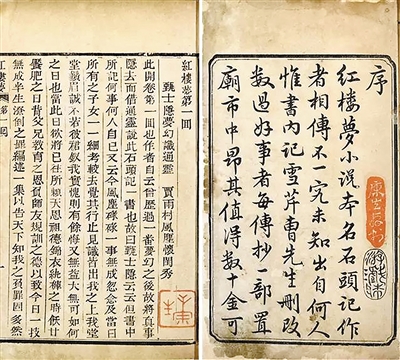 序
紅樓夢小說本名石頭記作
者相傳不一究未知出自何人
惟書內記雪芹曹先生刪改
數過好事者每傳抄一部置
廟市中昂其值得數十金可
紅樓夢第一回
甄士隱夢幻識通靈 賈雨村風塵懷閨秀
此開卷第一回也作者自云曾歷過一番夢幻之後故將真事
隱去而借通靈說此石頭記一書也故曰甄士隱云云但書中
所記何事何人自己又云今風塵碌碌一事無成忽念及當日
所有之子女一一細考較去覺其行止見識皆出我之上我堂
堂鬚眉誠不若彼裙釵我實愧則有餘悔又無益大無可如何
之日也當此日欲將已往所賴天恩祖德錦衣紈袴之時飫甘
饜肥之日背父兄教育之恩負師友規訓之德以致今日一技
無成半生潦倒之罪編述一集以告天下知我之負罪固多然
紅樓夢 第一回